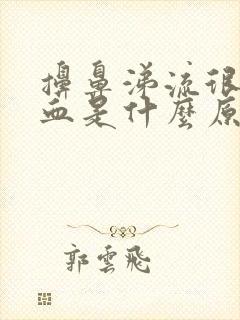 擤鼻涕流很
血是什麼原
郭雲飛